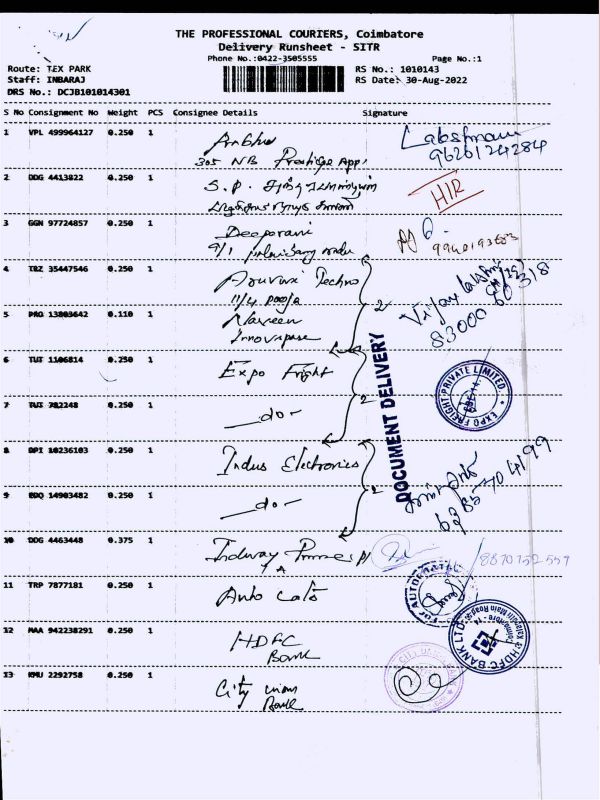 THE PROFESSIONAL COURIERS, Coimbatore
Delivery Runsheet - SITR
Phone No.:0422-3505555
Page No.:1
Route: TEX PARK
RS No.: 1010143
Staff: INBARAJ
RS Date: 30-Aug-2022
DRS No.: DCJB101014301
S No Consignment No Weight PCS Consignee Details Signature
1 VPL 499964127 0.250 1 Prabhu
305 NB Prestige App
9626124284
2 DDG 4413822 0.250 1 S.P.
HIR
3 GGN 97724857 0.250 1 Deeparani
9/1
4 TBZ 35447546 0.250 1 Techno
11/4 pooja
Vijay
83000 60318
5 PRO 13803642 0.110 1 Naveen
2
DOCUMENT DELIVERY
6 TUT 1106814 0.250 1 Expo Fright
EXPO FREIGHT PRIVATE LIMITED
7 TUT 782248 0.250 1 -do-
2
8 DPI 10236103 0.250 1 Indus Electronics
9 BDQ 14903482 0.250 1 -do-
2
63857 04199
10 DDG 4463448 0.375 1
8870752557
11 TRP 7877181 0.250 1 Auto
For AUTOMATAL
12 MAA 942238291 0.250 1 HDFC
Bank
HDFC BANK LTD
13 KMU 2292758 0.250 1 City union
Bank